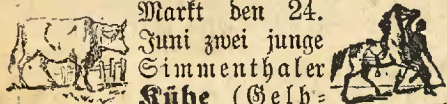 Markt den 24.
Juni zwei junge
Simmenthaler
Kühe (Gelb=